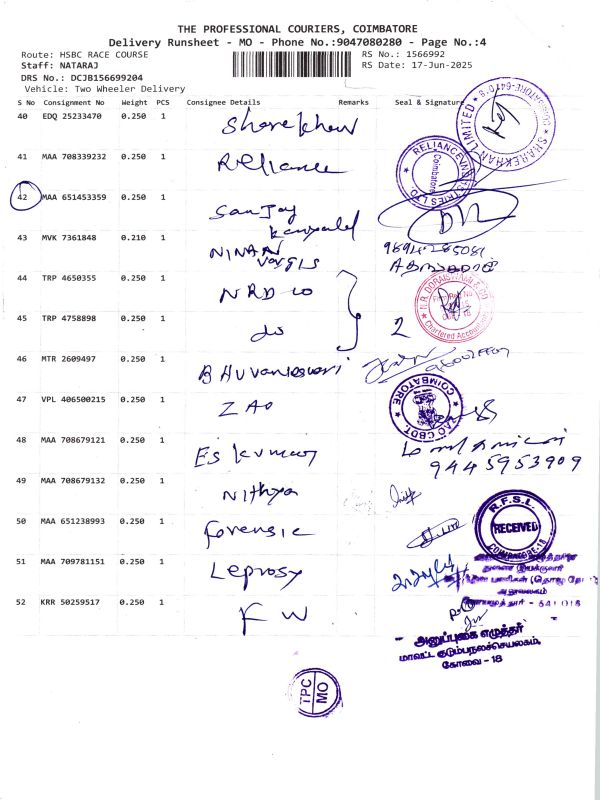 THE PROFESSIONAL COURIERS, COIMBATORE
Delivery Runsheet - MO - Phone No.:9047080280 - Page No.:4
Route: HSBC RACE COURSE
RS No.: 1566992
Staff: NATARAJ
RS Date: 17-Jun-2025
DRS No.: DCJB156699204
Vehicle: Two Wheeler Delivery
S No Consignment No Weight PCS Consignee Details Remarks Seal & Signature
40 EDQ 25233470 0.250 1 Sharekhan
SHAREKHAN LIMITED
41 MAA 708339232 0.250 1 Reliance
Coimbatore
42 MAA 651453359 0.250 1 Sanjay
43 MVK 7361848 0.210 1 NINAN
44 TRP 4650355 0.250 1 NRD co
N.R. DORAISWAMI & CO
Chartered Accountants
45 TRP 4758898 0.250 1 do 2
46 MTR 2609497 0.250 1 Bhuvaneswari
47 VPL 406500215 0.250 1 ZAO
COIMBATORE
ZAO CBDT
48 MAA 708679121 0.250 1 Es kumar
9445953909
49 MAA 708679132 0.250 1 Nithya
50 MAA 651238993 0.250 1 Forensic
R.F.S.L.
RECEIVED
COIMBATORE-18
51 MAA 709781151 0.250 1 Leprosy
அலுவலகம்
641 018
52 KRR 50259517 0.250 1 F W
அனுப்புகை எழுத்தர்
மாவட்ட குடும்பநலச்செயலகம்,
கோவை - 18
TPC
MO